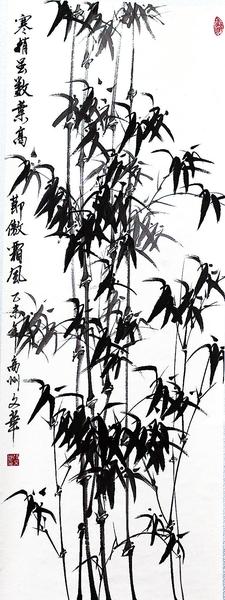 寒梢虽数葉高節傲霜風乙未年高州文華